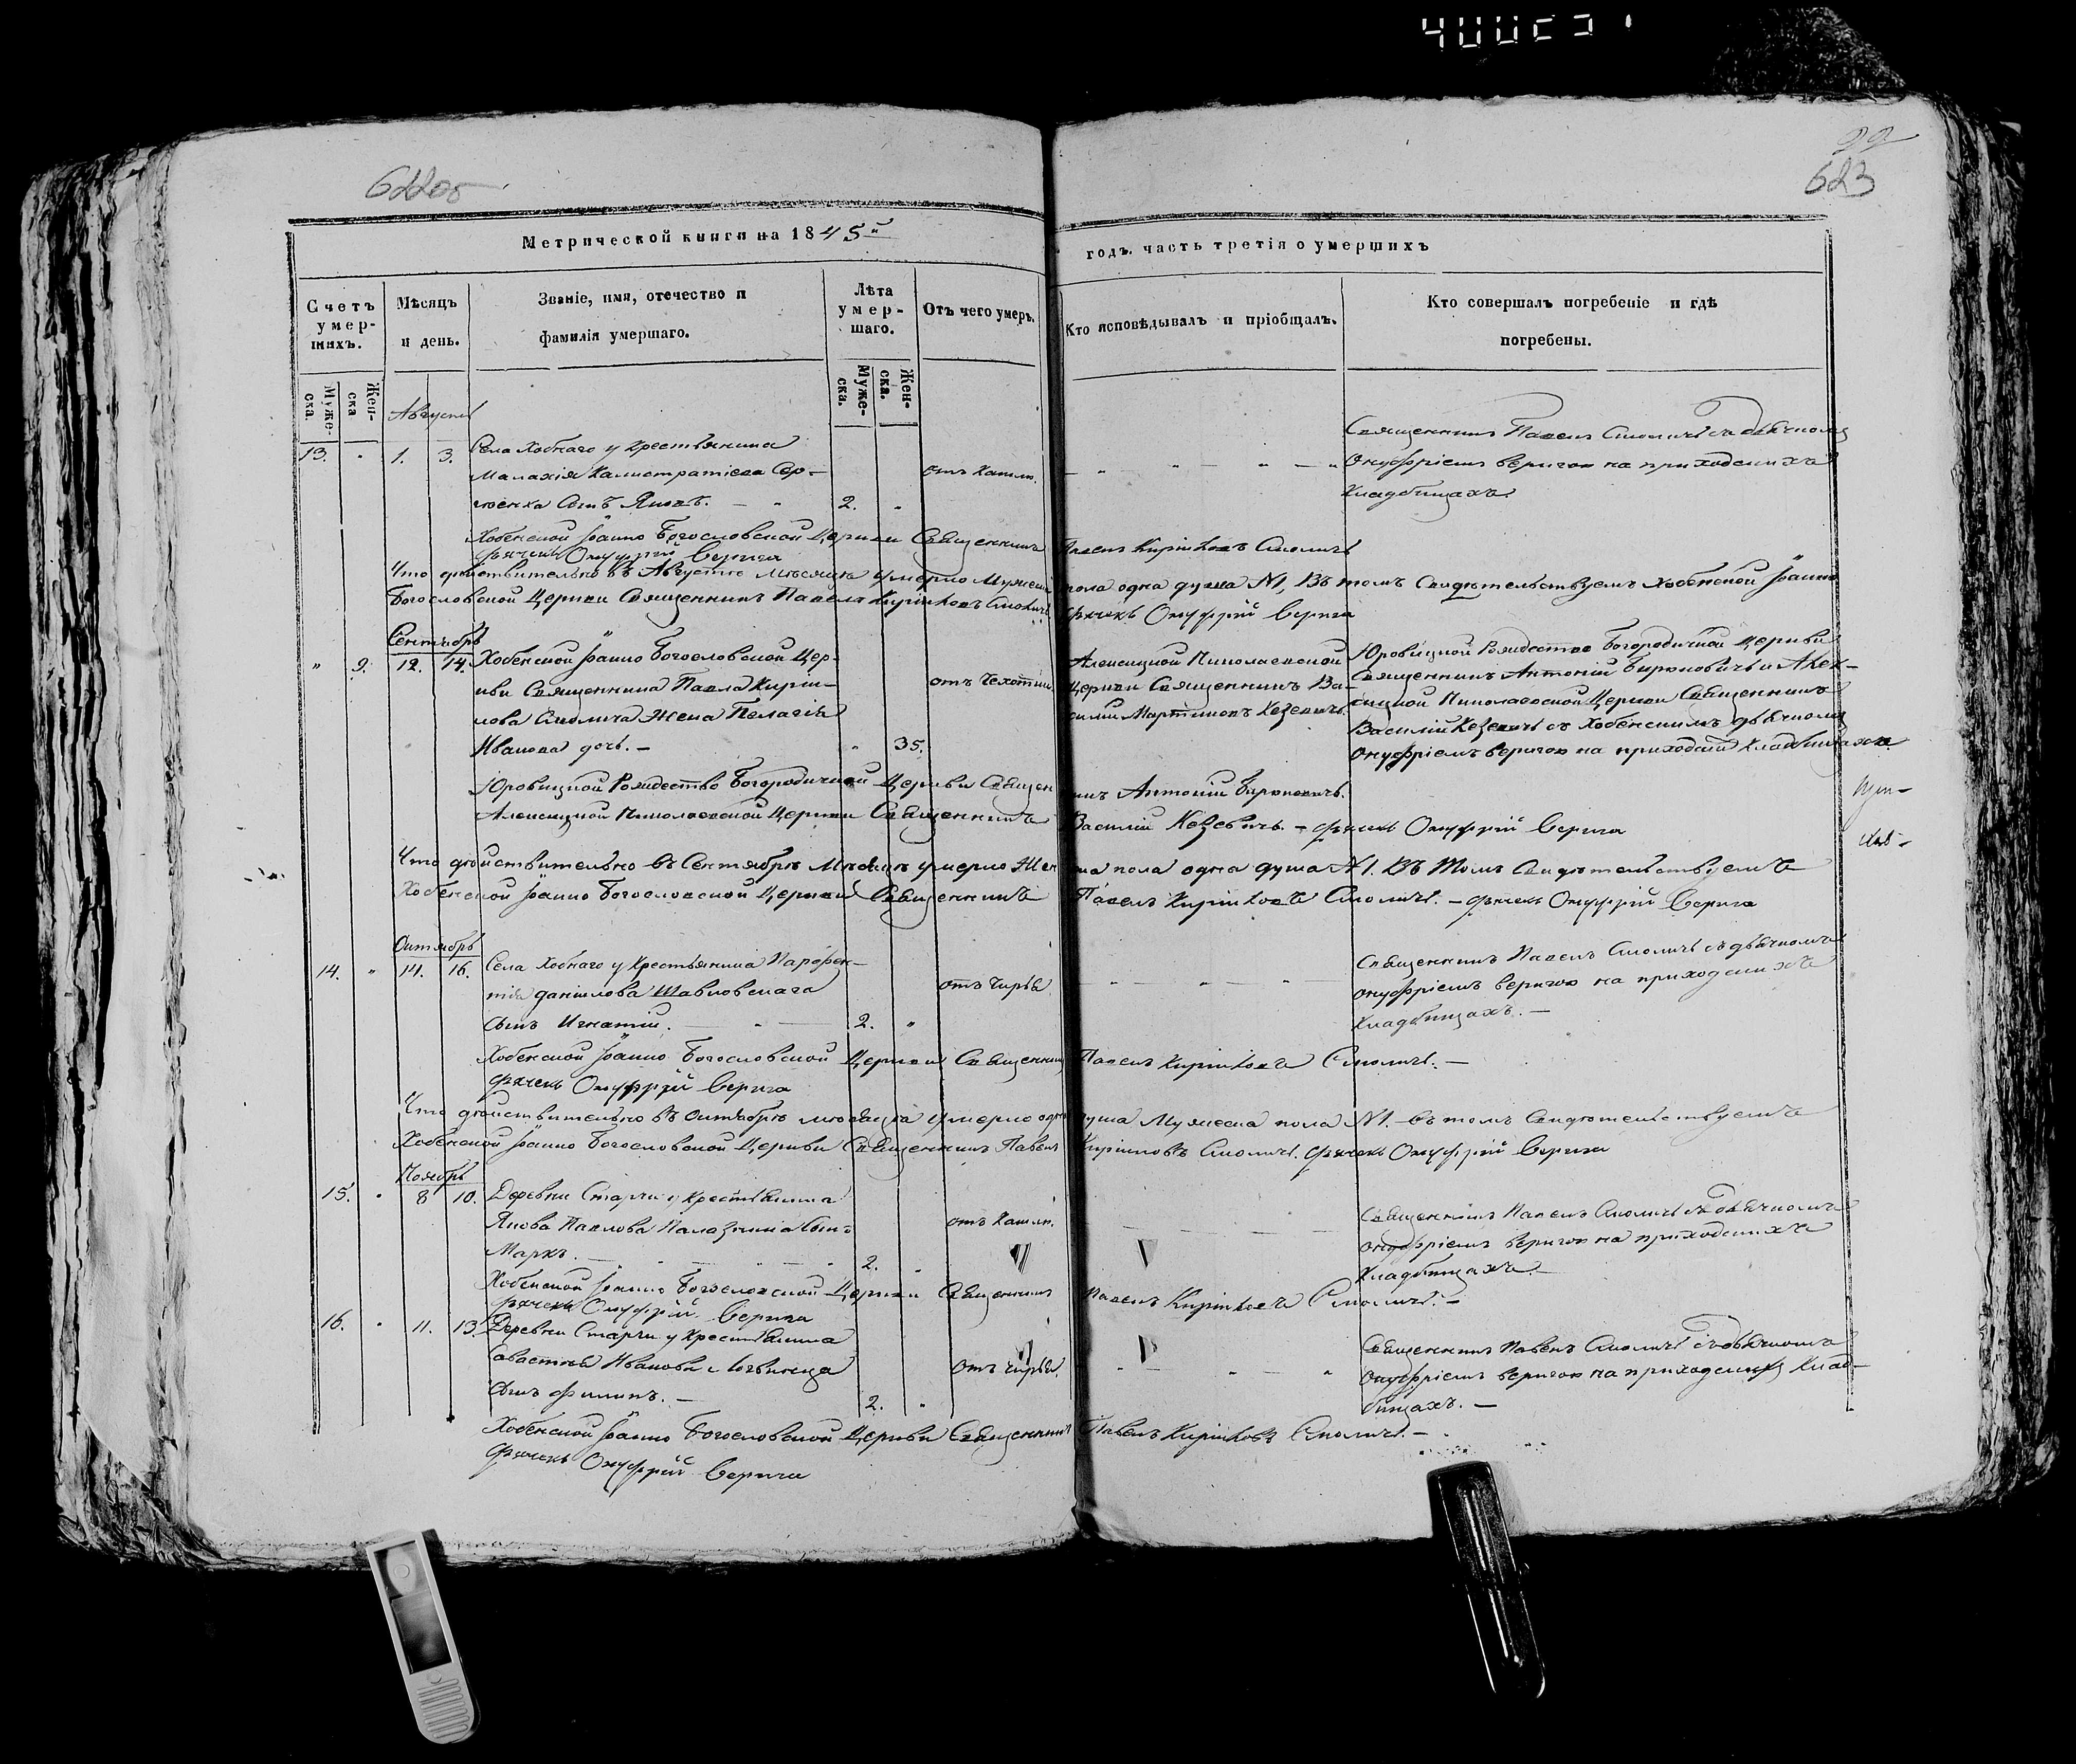 622об
623
Метрической книги на 1845й
годъ. часть третія о умершихъ
Счетъ умершихъ.
Мѣсяцъ и день.
Званіе, имя, отечество и фамилія умершаго.
Лѣта умершаго.
Отъ чего умеръ.
Кто исповѣдывалъ и пріобщалъ.
Кто совершалъ погребеніе и гдѣ погребены.
Мужеска.
Женска
Мужеска.
Женска.
Августъ
13. " 1. 3. Села Хобнаго у Крестьянина
Малахія Калистратіева Сер-
сынъ Яковъ. — " 2. "
отъ Кашлю.
Священникъ Павелъ Смоличъ съ дьячкомъ
Онуфріемъ Веригою на приходскихъ
Кладбищахъ
Хобенской Іоанно Богословской Церкви Священникъ Павелъ Кириловъ Смоличъ
дьячекъ Онуфрій Верига
Что дѣйствительно въ Августѣ мѣсяцѣ умерло Мужеска пола одна душа №1, Въ томъ Свидѣтельствуемъ Хобенской Іоанно
Богословской Церкви Священникъ Павелъ Кириловъ Смоличъ дьячекъ Онуфрій Верига
Сентябрь
" 9. 12. 14. Хобенской Іоанно Богословской Цер-
кви Священника Павла Кири-
лова Смолича Жена Пелагія
Иванова дочь. — " 35.
отъ Чехотки
Алексицкой Николаевской
Церкви Священникъ Ва-
силій Мартиновъ Кезевичъ.
Юровицкой Рождество Богородичной Церкви
Священникъ Антоній Бирюковичъ и Алек-
сицкой Николаевской Церкви Священникъ
Василій Кезевичъ съ Хобенскимъ дьячкомъ
Онуфріемъ Веригою на приходскихъ Кладбищахъ
Юровицкой Рождество Богородичной Церкви Священникъ Антоній Бирюковичъ.
Алексицкой Николаевской Церкви Священникъ Василій Кезевичъ. — дьячекъ Онуфрій Верига
Что дѣйствительно въ Сентябрѣ Мѣсяцѣ умерло Женска пола одна душа №1. Въ Томъ Свидѣтельствуемъ
Хобенской Іоанно Богословской Церкви Священникъ Павелъ Кириловъ Смоличъ. — дьячекъ Онуфрій Верига
Октябрь
14. " 14. 16. Села Хобнаго у Крестьянина Парфен-
тія Данилова Шавловскаго
сынъ Игнатій. — " — 2. "
отъ Чирья
Священникъ Павелъ Смоличъ съ дьячкомъ
Онуфріемъ Веригою на приходскихъ
Кладбищахъ. —
Хобенской Іоанно Богословской Церкви Священникъ Павелъ Кириловъ Смоличъ. —
дьячекъ Онуфрій Верига
Что дѣйствительно въ Октябрѣ мѣсяцѣ умерло одна душа Мужеска пола №1. — въ томъ Свидѣтельствуемъ
Хобенской Іоанно Богословской Церкви Священникъ Павелъ Кириловъ Смоличъ. дьячекъ Онуфрій Верига
Ноябрь
15. " 8 10. Деревни Старчи у Крестьянина
Якова Павлова сынъ
Маркъ. — 2. "
отъ Кашлю.
Священникъ Павелъ Смоличъ съ дьячкомъ
Онуфріемъ Веригою на приходскихъ
Кладбищахъ. —
Хобенской Іоанно Богословской Церкви Священникъ Павелъ Кириловъ Смоличъ. —
дьячекъ Онуфрій Верига
16. " 11. 13. Деревни Старчи у Крестьянина
Иванова
сынъ Филипъ. — 2. "
отъ чирья.
Священникъ Павелъ Смоличъ съ дьячкомъ
Онуфріемъ Веригою на приходскихъ Клад-
бищахъ. —
Хобенской Іоанно Богословской Церкви Священникъ Павелъ Кириловъ Смоличъ. —
дьячекъ Онуфрій Верига